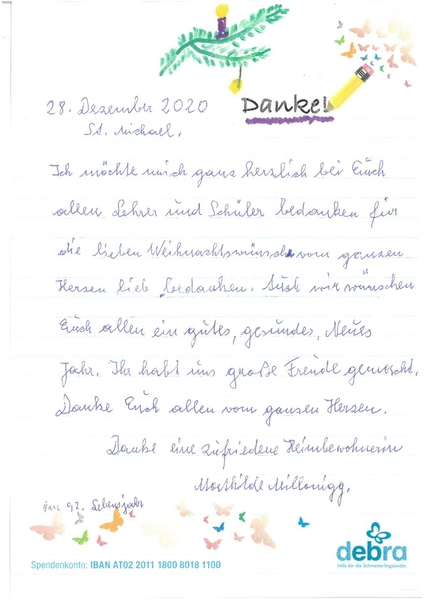 28. Dezember 2020
Danke!
St. Michael,
Ich möchte mich ganz herzlich bei Euch
allen Lehrer und Schüler bedanken für
die lieben Weihnachtswünsche vom ganzen
Herzen lieb bedanken. Auch wir wünschen
Euch allen ein gutes, gesundes, Neues
Jahr. Ihr habt uns große Freude gemacht.
Danke Euch allen vom ganzen Herzen.
Danke eine zufriedene Heimbewohnerin
Mathilde Millonigg,
im 92. Lebensjahr
debra
Hilfe für die Schmetterlingskinder.
Spendenkonto: IBAN AT02 2011 1800 8018 1100